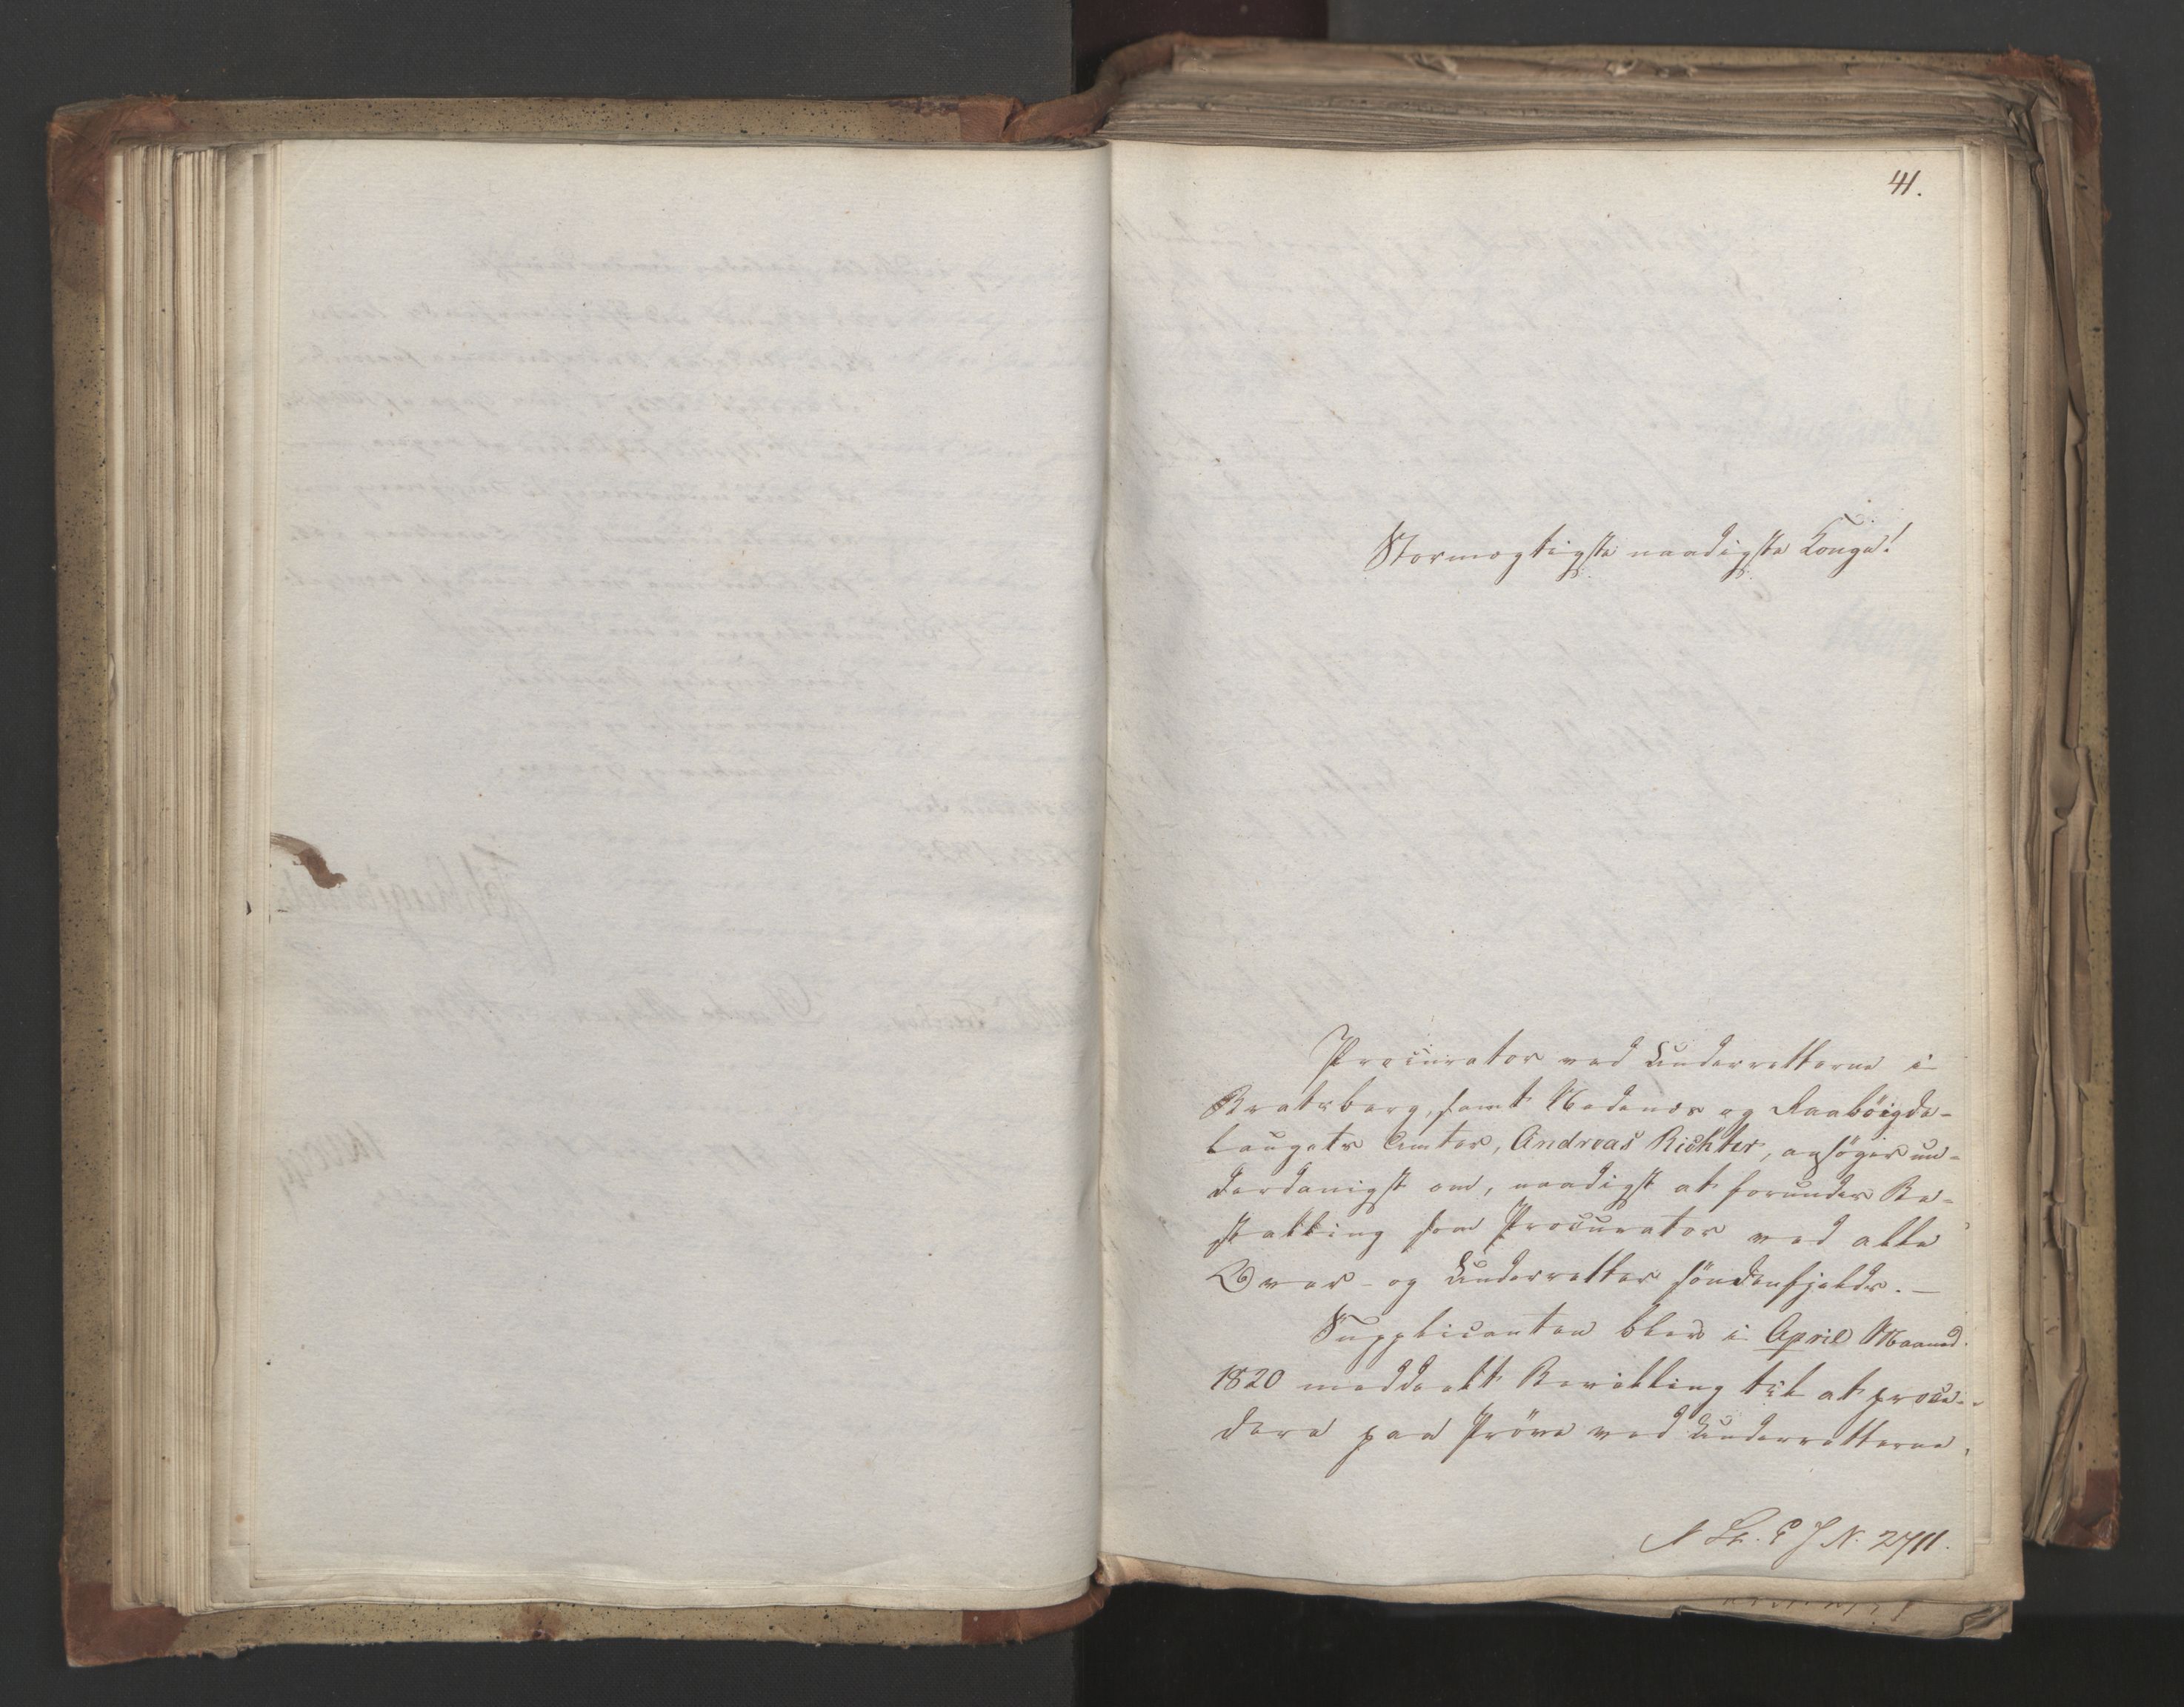 41.
Stormægtigste naadigste Konge!
Procurator ved Underretterne i
Bratsberg, samt Nedenæs og Raabøigde-
laugets Amter, Andreas Richter, ansøger un-
derdanigst om, naadigst at forundes Be-
stalling som Procurator ved alle
Over- og Underretter søndenfjelds. -
Supplicanten blev i April Maaned
1820 meddeelt Bevilling til at proce-
dere paa Prøve ved Underretterne,
J. N. 2711.